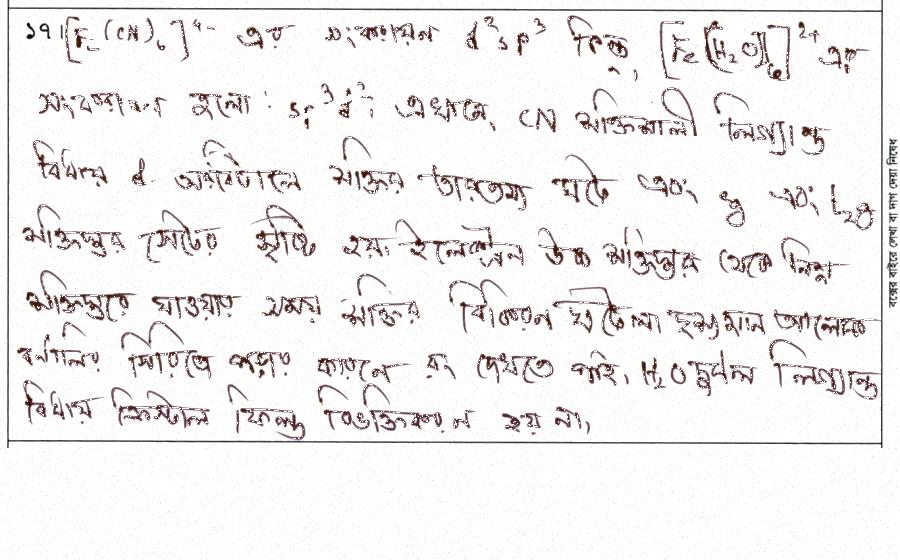 ১৭। [Fe(CN)6]4- এর সংকরায়ন d2sp3 কিন্তু, [Fe(H2O)6]2+ এর
সংকরায়ন হলো: sp3d2; এখানে, CN শক্তিশালী লিগ্যান্ড
বিধায় d অরবিটালে শক্তির তারতম্য ঘটে এবং g এবং t2g
শক্তিস্তর সেটের সৃষ্টি হয়। ইলেকট্রন উচ্চ শক্তিস্তর থেকে নিম্ন
শক্তিস্তরে যাওয়ার সময় শক্তির বিকিরন ঘটে যা দৃশ্যমান আলোক
বর্ণালির সিরিজে পড়ার কারনে রং দেখতে পাই। H2O দুর্বল লিগ্যান্ড
বিধায় ক্রিস্টাল ফিল্ড বিভক্তিকরন হয় না।
বক্সের বাইরে লেখা বা দাগ দেয়া নিষেধ